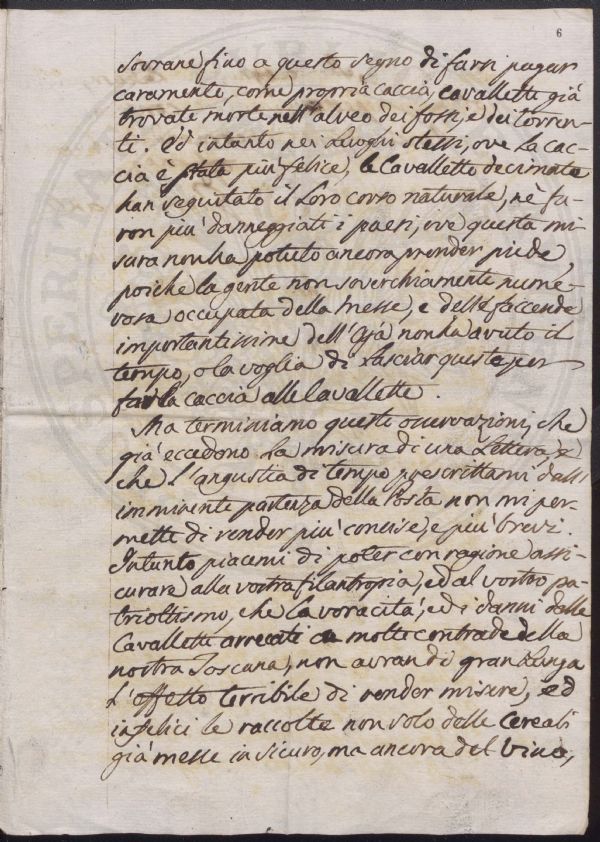 6
sovrane) fino a questo segno di farsi pagar
caramente, come propria caccia, cavallette già
trovate morte nell'alveo dei fossi, e dei torren-
ti. Ed intanto nei Luoghi stessi, ove la cac-
cia è stata più felice, le Cavallette decimate
han seguitato il Loro corso naturale, nè fu-
ron più danneggiati i paesi, ove questa mi-
sura non ha potuto ancora prender piede,
poichè la gente non soverchiamente nume-
rosa occupata della Messe, e delle faccende
importantissime dell'Aja non ha avuto il
tempo, o la voglia di Lasciar queste per
far la caccia alle Cavallette.
Ma terminiamo queste osservazioni, che
già eccedono la misura di una Lettera, e
che l'angustia di tempo prescrittami dall'
imminente partenza della Posta non mi per-
mette di render più concise, e più brevi.
Intanto piacemi di poter con ragione assi-
curare alla vostra filantropia, ed al vostro pa-
triottismo, che la voracità, ed i danni delle
Cavallette arrecati a molte contrade della
nostra Toscana, non avran di gran Lunga
L'effetto terribile di render misere, ed
infelici le raccolte non solo delle Cereali
già messe in sicuro, ma ancora del vino,